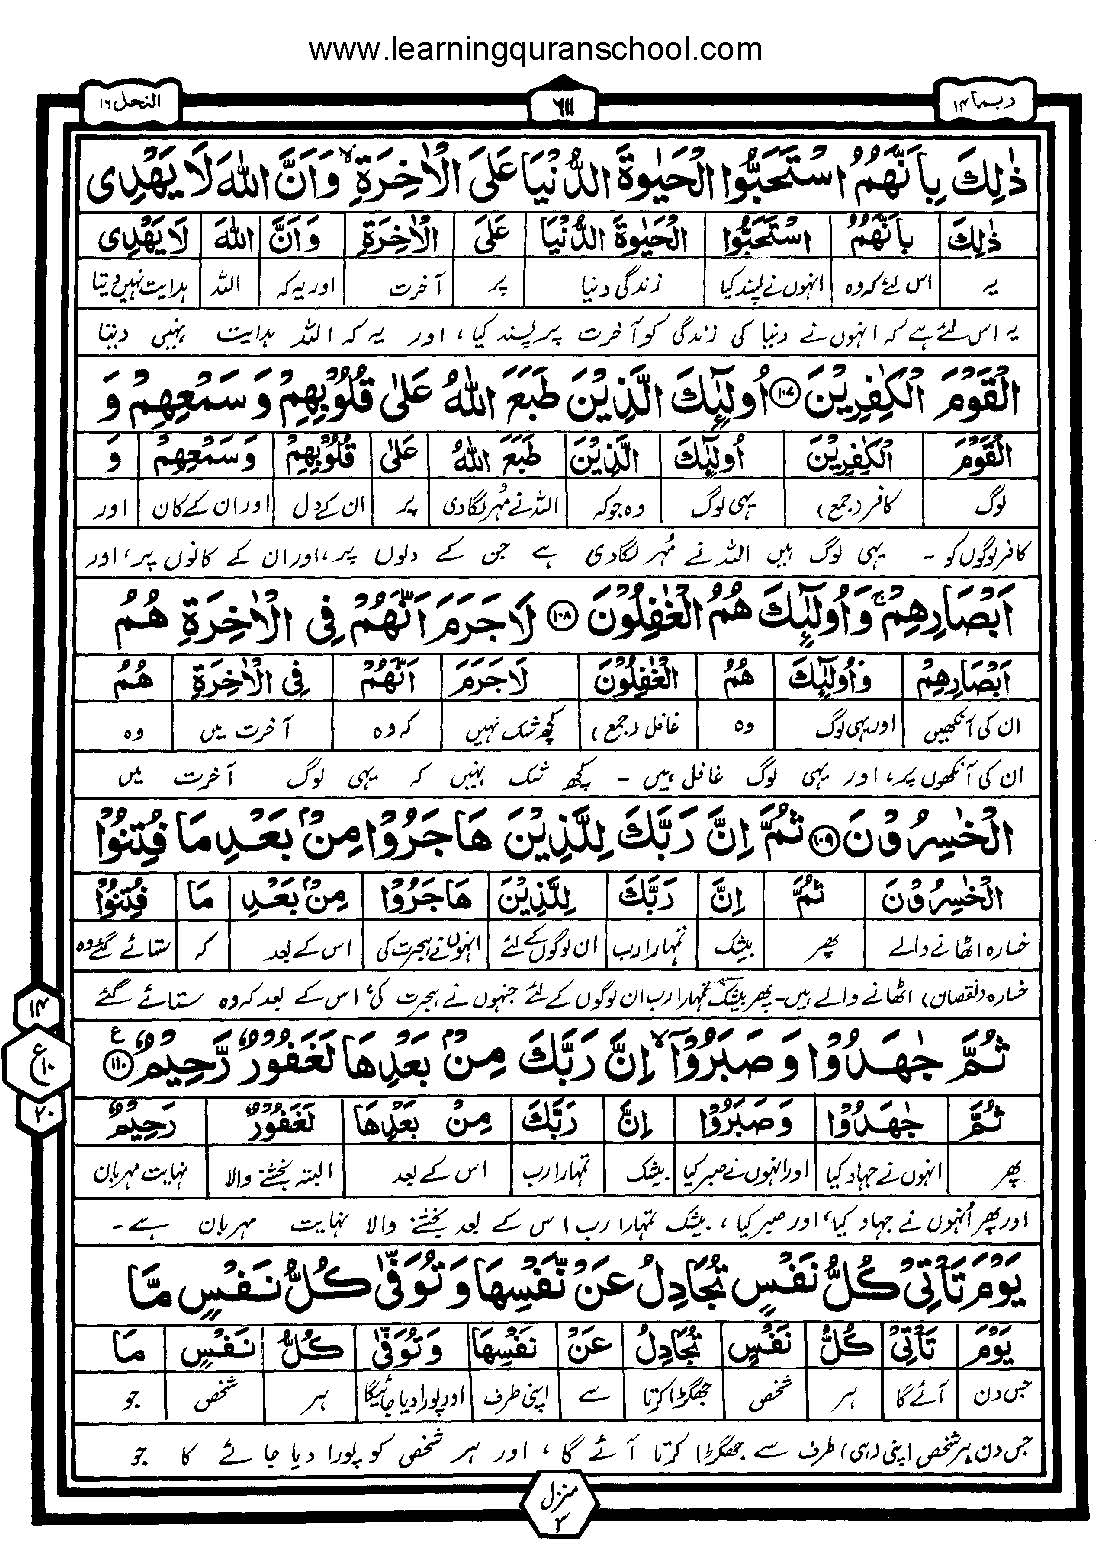 www.learningquranschool.com
ربما ۱۴
۶۱۱
النحل ۱۶
ذٰلِكَ بِاَنَّهُمُ اسْتَحَبُّوا الْحَيٰوةَ الدُّنْيَا عَلَى الْاٰخِرَةِ ۙ وَاَنَّ اللّٰهَ لَا يَهْدِى
ذٰلِكَ بِاَنَّهُمُ اسْتَحَبُّوا الْحَيٰوةَ الدُّنْيَا عَلَى الْاٰخِرَةِ وَاَنَّ اللّٰهَ لَا يَهْدِى
یہ اس لئے کہ وہ انہوں نے پسند کیا زندگی دنیا پر آخرت اور یہ کہ اللہ ہدایت نہیں دیتا
یہ اس لئے ہے کہ انہوں نے دنیا کی زندگی کو آخرت پر پسند کیا، اور یہ کہ اللہ ہدایت نہیں دیتا
الْقَوْمَ الْكٰفِرِيْنَ ۱۰۷ اُولٰٓئِكَ الَّذِيْنَ طَبَعَ اللّٰهُ عَلٰى قُلُوْبِهِمْ وَسَمْعِهِمْ وَ
الْقَوْمَ الْكٰفِرِيْنَ اُولٰٓئِكَ الَّذِيْنَ طَبَعَ اللّٰهُ عَلٰى قُلُوْبِهِمْ وَسَمْعِهِمْ وَ
لوگ کافر (جمع) یہی لوگ وہ جو کہ اللہ نے مُہر لگا دی پر ان کے دل اور ان کے کان اور
کافر لوگوں کو - یہی لوگ ہیں اللہ نے مُہر لگا دی ہے جن کے دلوں پر، اور ان کے کانوں پر، اور
اَبْصَارِهِمْ ۚ وَاُولٰٓئِكَ هُمُ الْغٰفِلُوْنَ ۱۰۸ لَا جَرَمَ اَنَّهُمْ فِى الْاٰخِرَةِ هُمُ
اَبْصَارِهِمْ وَاُولٰٓئِكَ هُمُ الْغٰفِلُوْنَ لَا جَرَمَ اَنَّهُمْ فِى الْاٰخِرَةِ هُمُ
ان کی آنکھیں اور یہی لوگ وہ غافل (جمع) کچھ شک نہیں کہ وہ آخرت میں وہ
ان کی آنکھوں پر، اور یہی لوگ غافل ہیں - کچھ شک نہیں کہ یہی لوگ آخرت میں
الْخٰسِرُوْنَ ۱۰۹ ثُمَّ اِنَّ رَبَّكَ لِلَّذِيْنَ هَاجَرُوْا مِنْۢ بَعْدِ مَا فُتِنُوْا
الْخٰسِرُوْنَ ثُمَّ اِنَّ رَبَّكَ لِلَّذِيْنَ هَاجَرُوْا مِنْۢ بَعْدِ مَا فُتِنُوْا
خسارہ اٹھانے والے پھر بیشک تمہارا رب ان لوگوں کے لئے انہوں نے ہجرت کی اس کے بعد کہ ستائے گئے وہ
خسارہ (نقصان) اٹھانے والے ہیں - پھر بیشک تمہارا رب ان لوگوں کے لئے جنہوں نے ہجرت کی اس کے بعد کہ وہ ستائے گئے
ثُمَّ جٰهَدُوْا وَصَبَرُوْٓا ۙ اِنَّ رَبَّكَ مِنْۢ بَعْدِهَا لَغَفُوْرٌ رَّحِيْمٌ ۱۱۰ ع
۱۴
ع ۱۰
۲۰
ثُمَّ جٰهَدُوْا وَصَبَرُوْا اِنَّ رَبَّكَ مِنْۢ بَعْدِهَا لَغَفُوْرٌ رَحِيْمٌ
پھر انہوں نے جہاد کیا اور انہوں نے صبر کیا بیشک تمہارا رب اس کے بعد البتہ بخشنے والا نہایت مہربان
اور پھر اُنہوں نے جہاد کیا، اور صبر کیا، بیشک تمہارا رب اس کے بعد بخشنے والا نہایت مہربان ہے -
يَوْمَ تَاْتِىْ كُلُّ نَفْسٍ تُجَادِلُ عَنْ نَّفْسِهَا وَتُوَفّٰى كُلُّ نَفْسٍ مَّا
يَوْمَ تَاْتِىْ كُلُّ نَفْسٍ تُجَادِلُ عَنْ نَفْسِهَا وَتُوَفّٰى كُلُّ نَفْسٍ مَا
جس دن آئے گا ہر شخص جھگڑا کرتا سے اپنی طرف اور پورا دیا جائیگا ہر شخص جو
جس دن ہر شخص اپنی (ہی) طرف سے جھگڑا کرتا آئے گا، اور ہر شخص کو پورا دیا جائے گا جو
منزل ۳